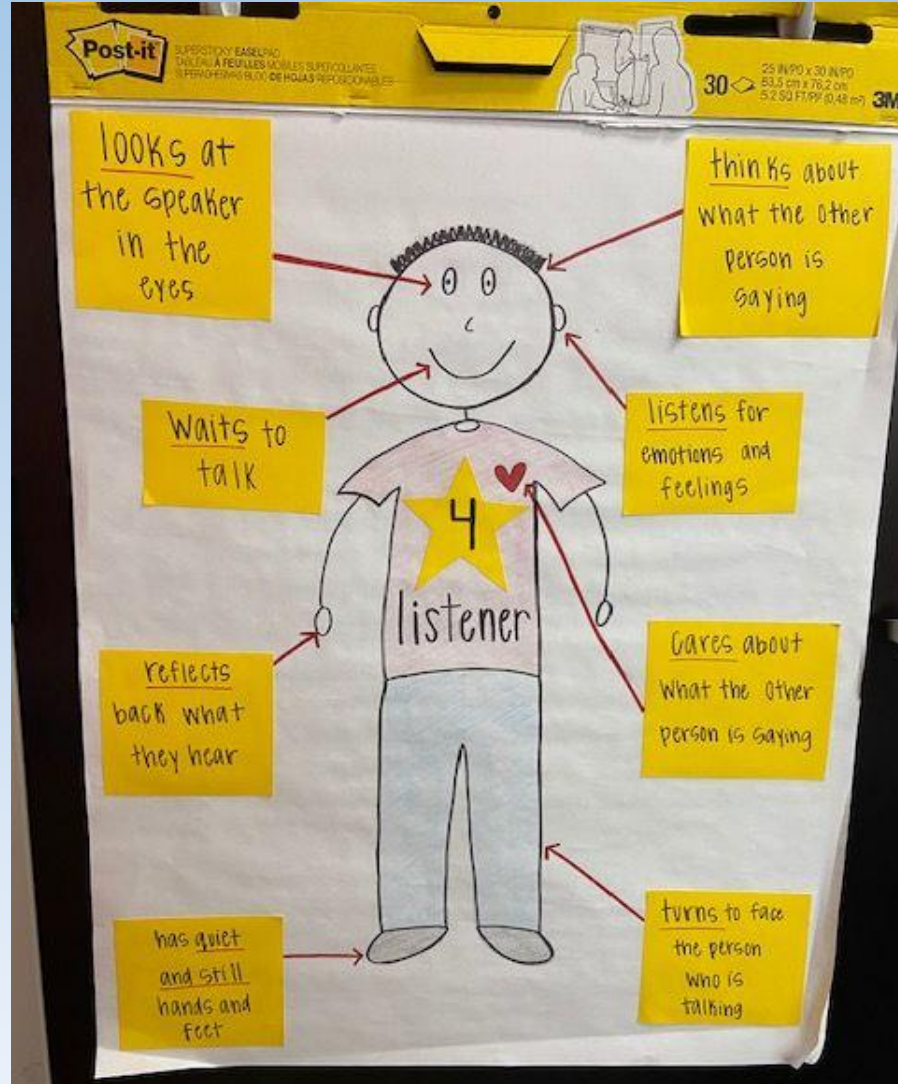 Post-it
SUPERSTICKY EASEL PAD
TABLEAU À FEUILLES MOBILES SUPERCOLLANTES
SUPERADHESIVAS BLOC DE HOJAS REPOSICIONABLES
30
25 IN/PO x 30 IN/PO
63,5 cm x 76,2 cm
5.2 SQ FT/PI² (0,48 m²)
3M
looks at
the speaker
in the
eyes
thinks about
what the other
person is
saying
waits to
talk
listens for
emotions and
feelings
4
listener
reflects
back what
they hear
cares about
what the other
person is saying
has quiet
and still
hands and
feet
turns to face
the person
who is
talking